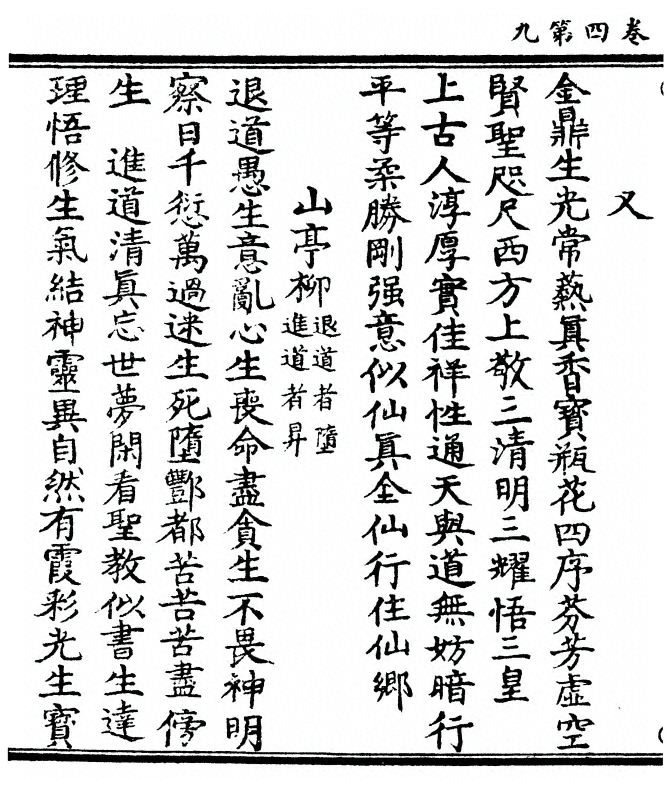 卷四第九
又
金鼎生光常爇眞香寶瓶花四序芬芳虛空
賢聖咫尺西方上敬三清明三耀悟三皇
上古人淳厚實佳祥性通天與道無妨暗行
平等柔勝剛强意似仙眞全仙行住仙鄉
山亭柳退道者墮
進道者昇
退道愚生意亂心生喪命盡貪生不畏神明
察日千愆萬過迷生死墮酆都苦苦苦盡傍
生 進道清眞忘世夢閑看聖教似書生達
理悟修生氣結神靈異自然有霞彩光生寶